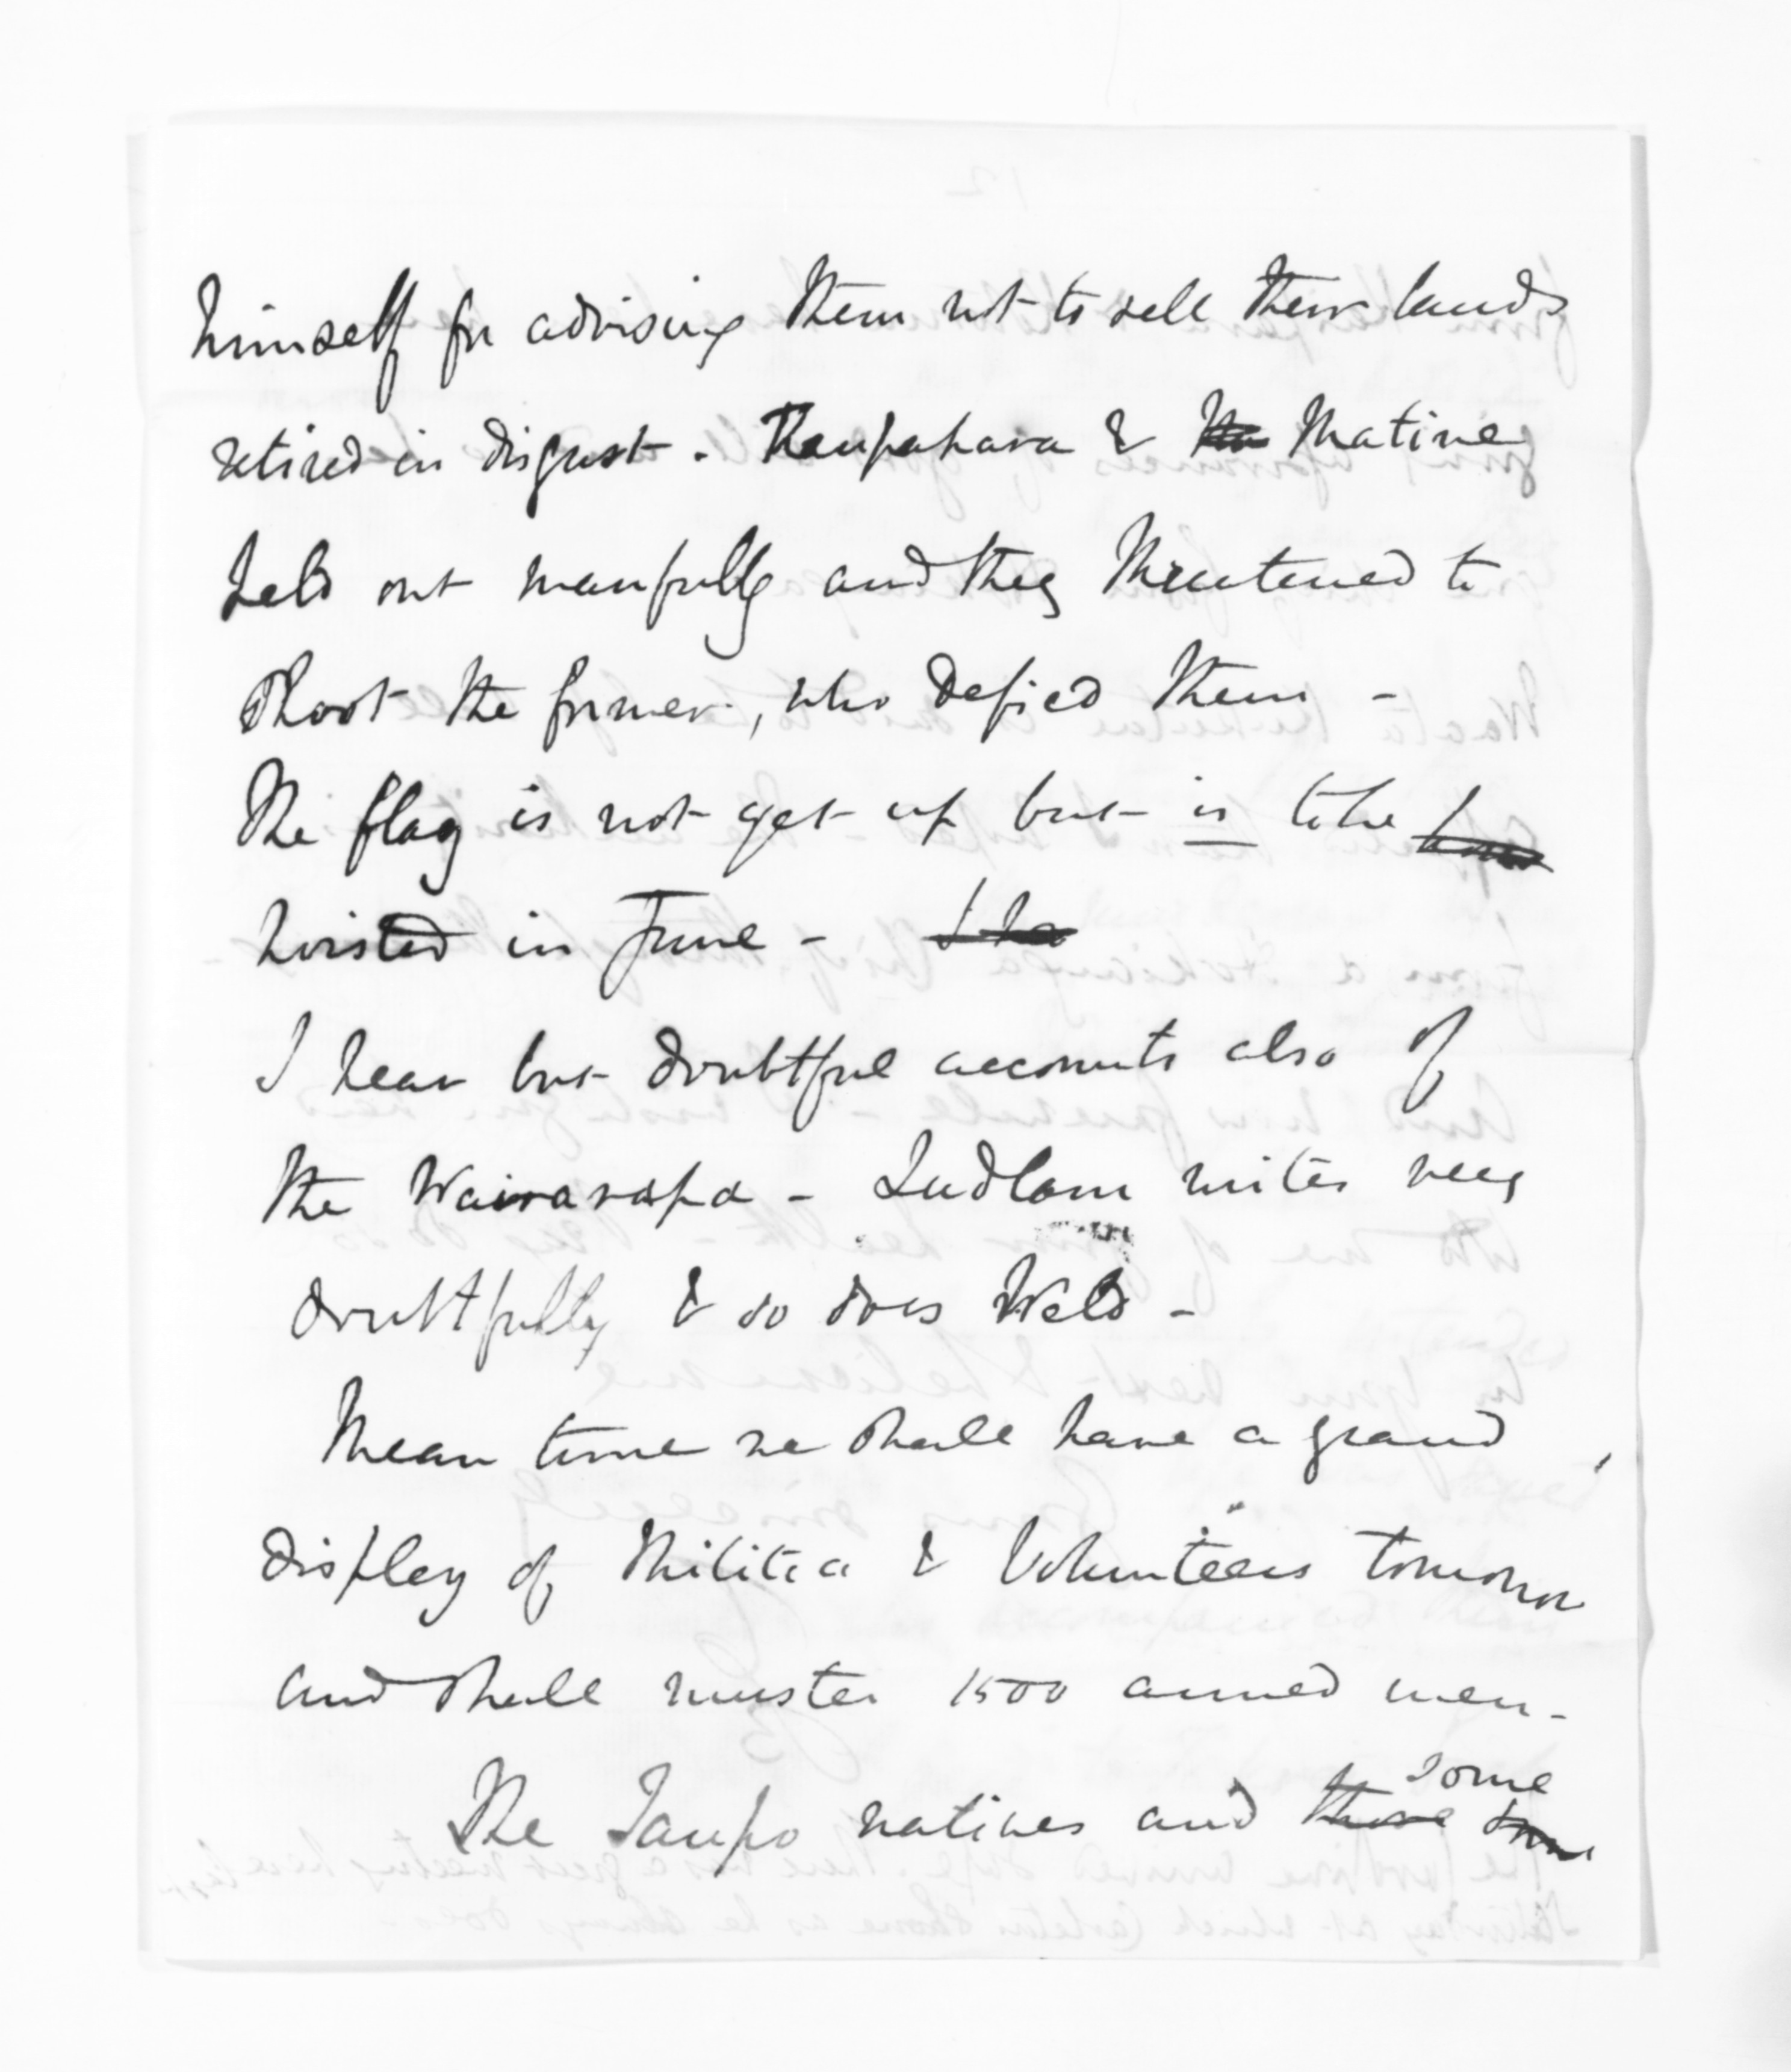 himself for advising them not to sell their lands
retired in disgust - Raupahara & Matine
held out manfully and they threatened to
shoot the former, who defied them -
The flag is not yet up but is to be
hoisted in June -
I hear but doubtful accounts also of
the Wairarapa - Ludlam writes very
doubtfully & so does Weld -
Mean time we shall have a grand
display of Militia & Volunteers tomorrow
and shall muster 1500 armed men -
some
The Taupo natives and those from